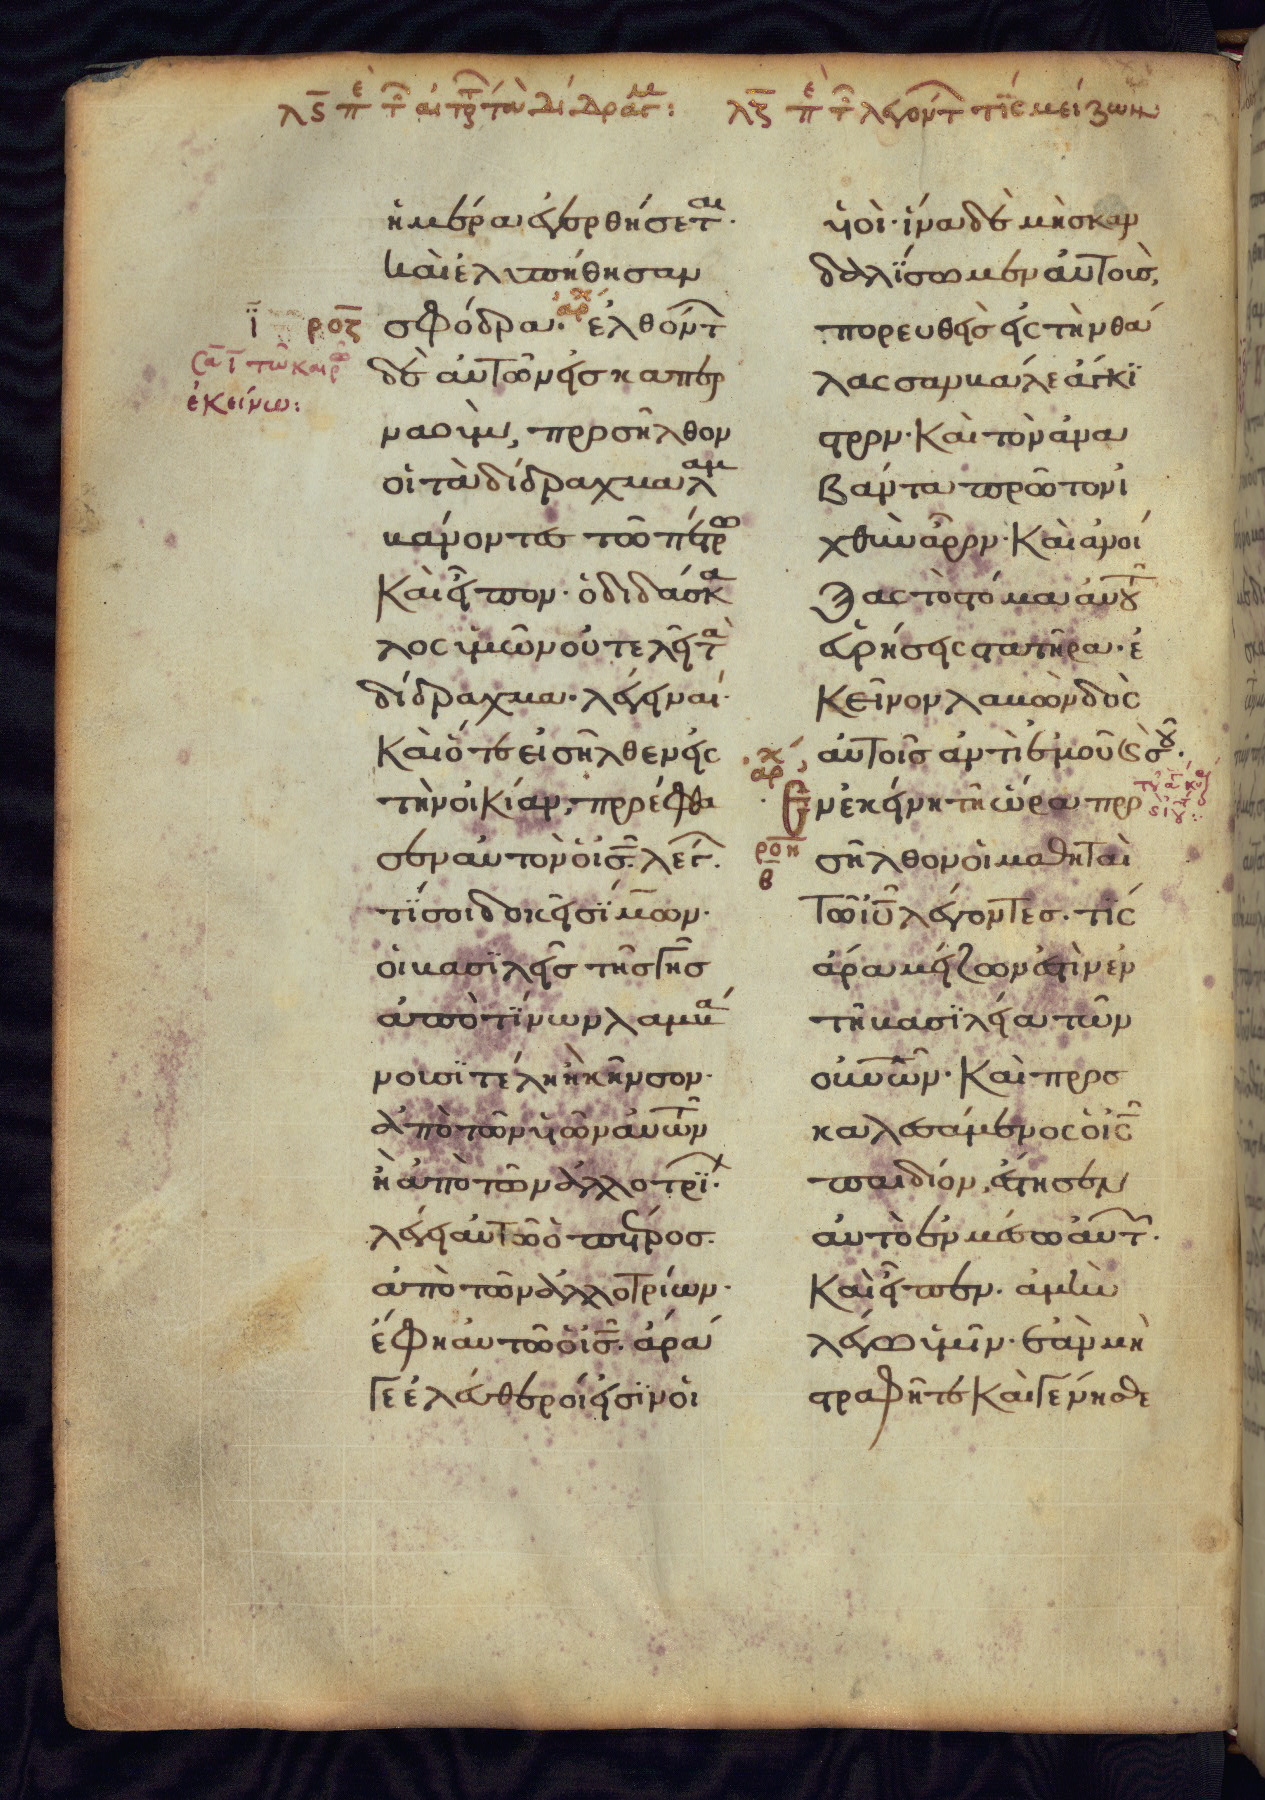 λϛ πε τ αιτ τα διδραγμ: λζ πε τ λεγοντ τίς μείζων
ἡμέρα ἐγερθήσεται.
καὶ ἐλυπήθησαν
ροζ σφόδρα· ἀρχ ἐλθόντ
σα ι τῶ καιρῶ δὲ αὐτῶν εἰσ καπερ
ἐκείνω:
ναοὺμ, προσῆλθον
οἱ τὰ δίδραχμα λαμ
βάνοντες τῶ πέτρω
καὶ εἶπον· ὁ διδάσκα
λος ὑμῶν οὐ τελεῖ τὰ
δίδραχμα· λέγει ναί·
καὶ ὅτε εἰσῆλθεν εἰς
τὴν οἰκίαν, προέφθα
σεν αὐτὸν ὁ ις. λέγ.
τί σοι δοκεῖ σίμων·
οἱ βασιλεῖς τῆς γῆς
ἀπὸ τίνων λαμβά
νουσι τέλη ἢ κῆνσον·
ἀπὸ τῶν υἱῶν αὐτῶν
ἢ ἀπὸ τῶν ἀλλοτρί·
λέγει αὐτῶ ὁ πέτρος·
ἀπὸ τῶν ἀλλοτρίων·
ἔφη αὐτῶ ὁ ις. ἄρα
γε ἐλεύθεροί εἰσιν οἱ
υἱοί· ἵνα δὲ μὴ σκαν
δαλίσωμεν αὐτοὺς,
πορευθεὶς εἰς τὴν θά
λασσαν βάλε ἄγκι
στρον· καὶ τὸν ἀνα
βάντα πρῶτον ἰ
χθὺν ἆρον· καὶ ἀνοί
ξας τὸ στόμα αὐτοῦ
εὑρήσεις στατῆρα· ἐ
κεῖνον λαβὼν δὸς
αὐτοῖς ἀντὶ ἐμοῦ καὶ σοῦ·
ἀρχ Ἐν ἐκείνη τῆ ὥρα προ
ροη β σῆλθον οἱ μαθηταὶ
τῶ ιυ λέγοντες· τίς
ἄρα μείζων ἐστὶν ἐν
τῆ βασιλεία τῶν
οὐνῶν· καὶ προσ
καλεσάμενος ὁ ις
παιδίον, ἔστησεν
αὐτὸ ἐν μέσω αὐτ.
καὶ εἶπεν· ἀμὴν
λέγω ὑμῖν· ἐὰν μὴ
στραφῆτε καὶ γένησθε